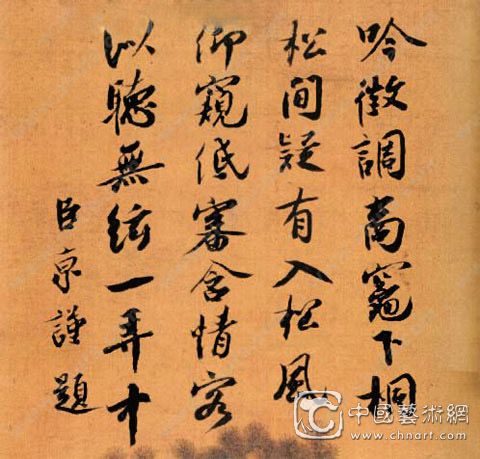 吟徵調商竈下桐
松間疑有入松風
仰窺低審含情客
似聽無絃一弄中
臣京謹題
中國藝術網
www.chnart.com